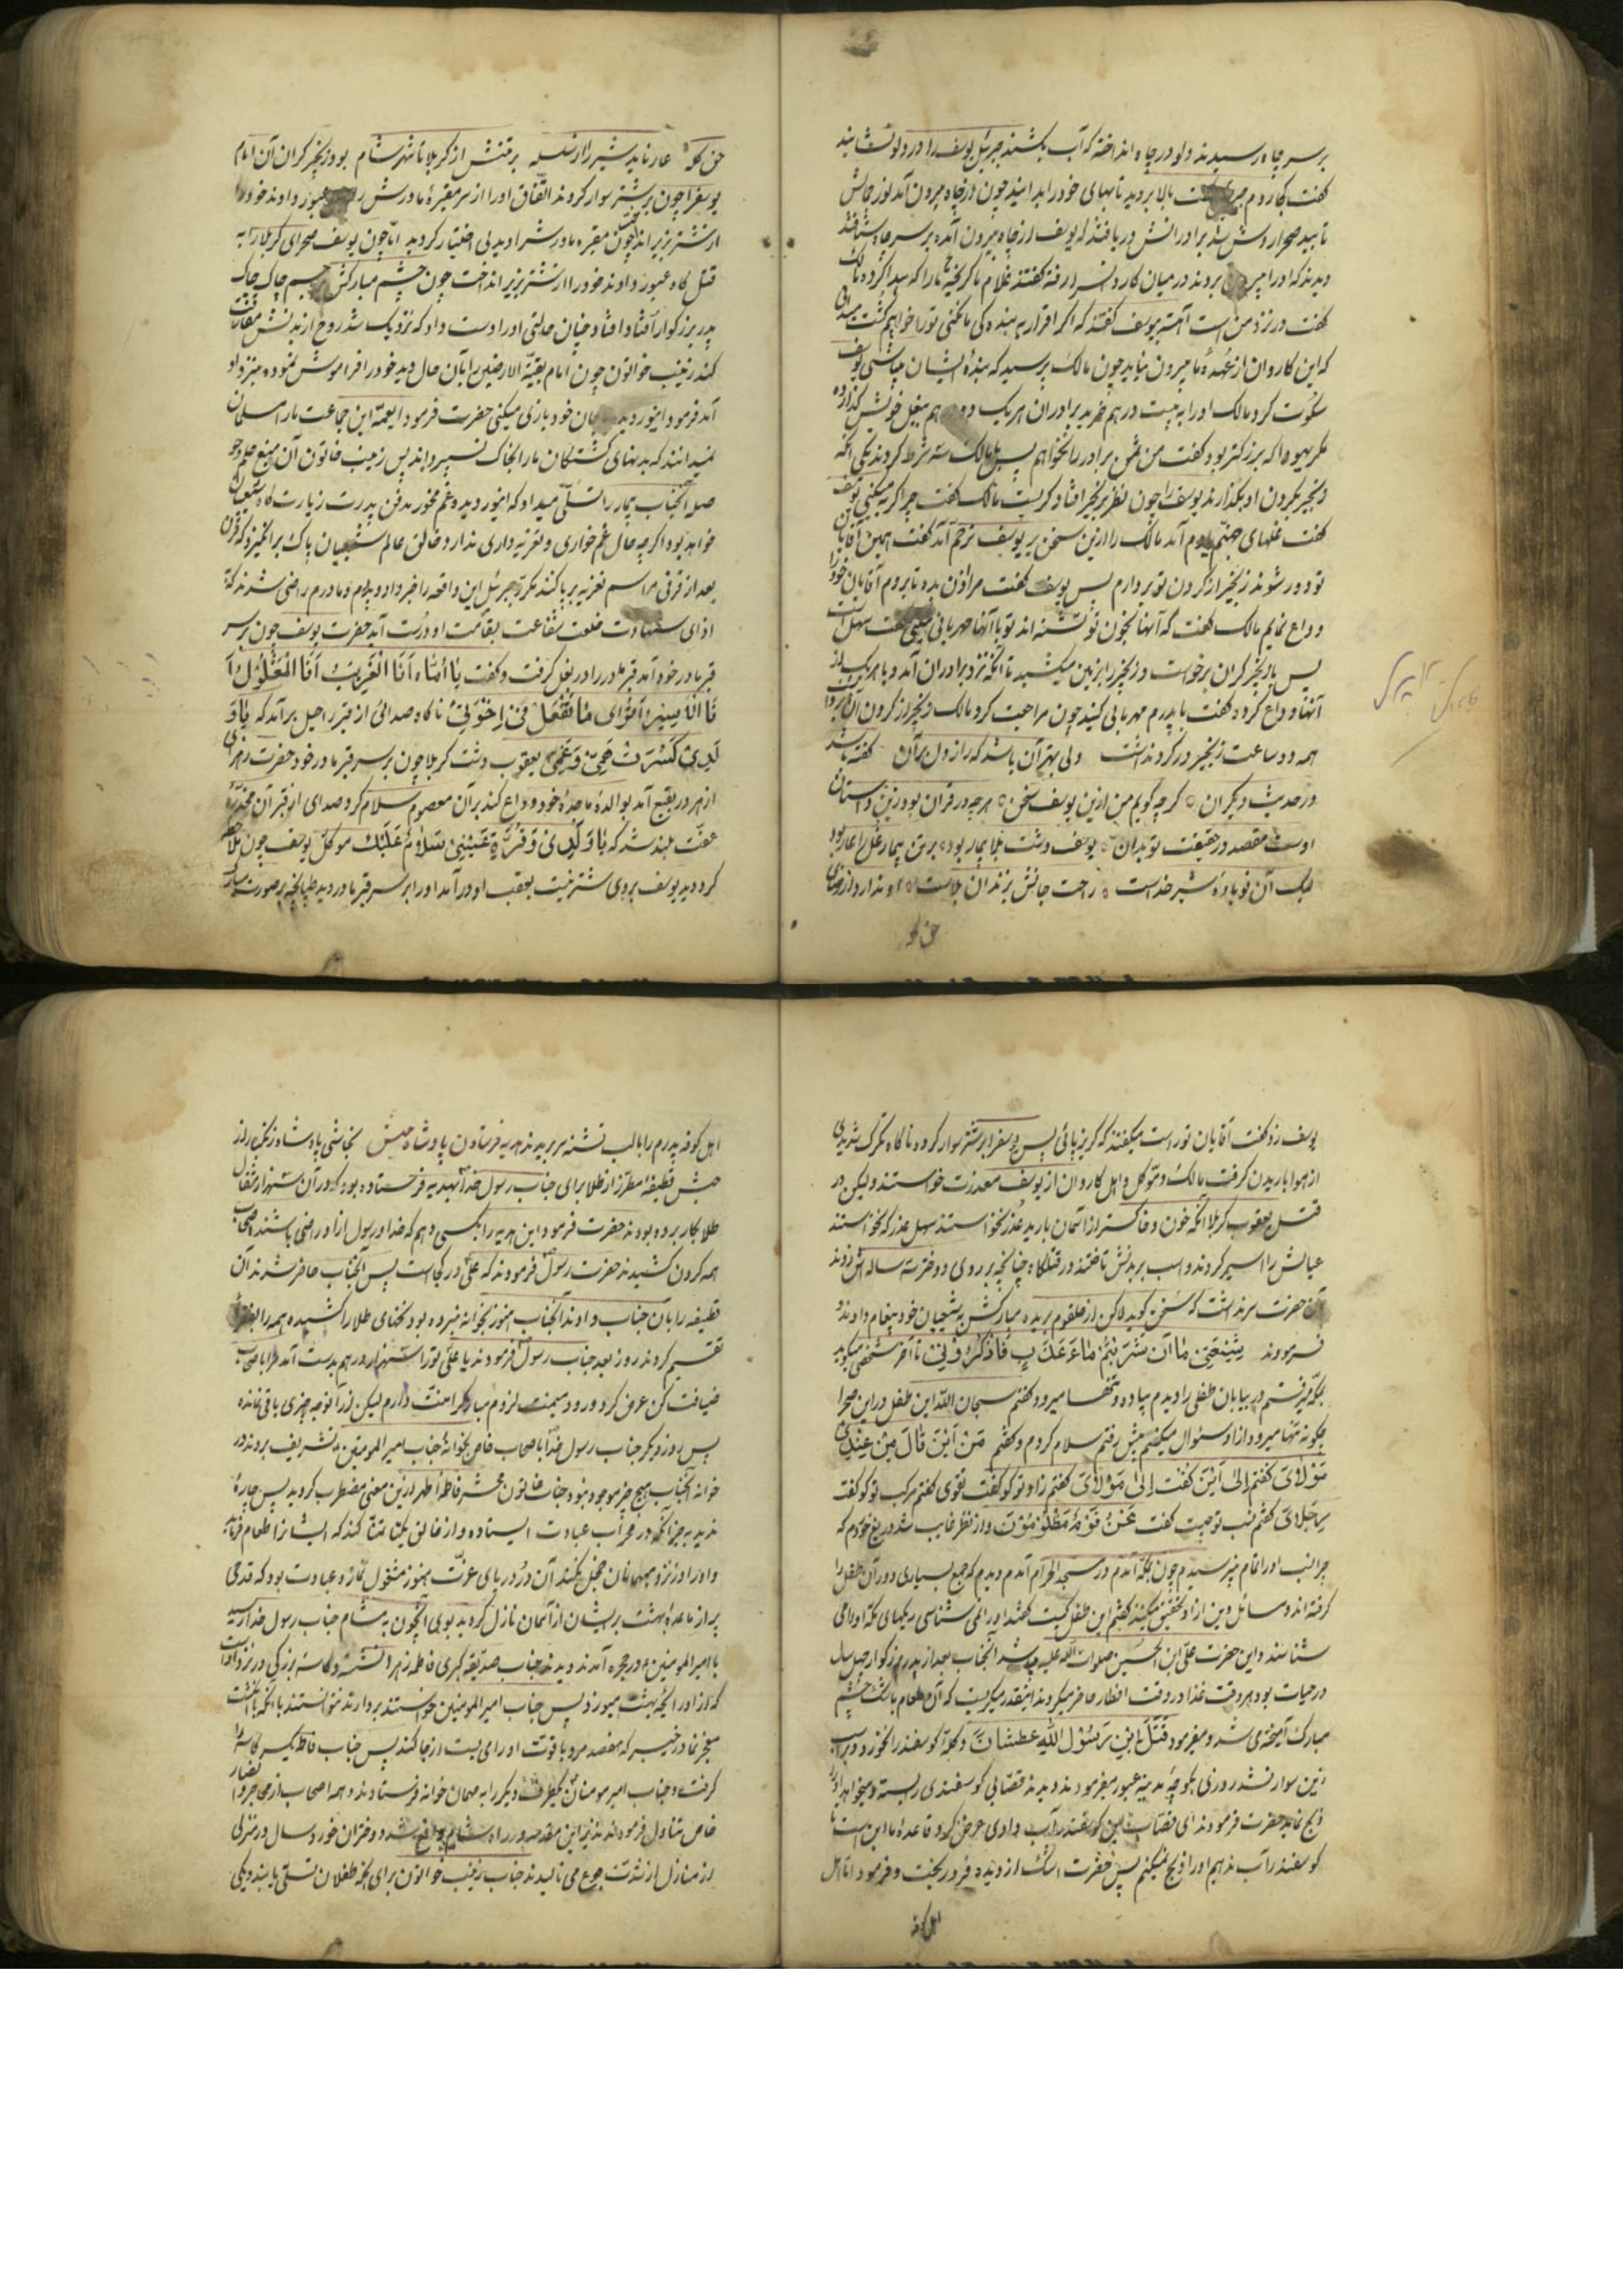 بر سر چاه رسیدند دلو در چاه انداخته که آب بکشند جبرئیل یوسف را در دلو نشانید
گفت بکجا روم بالا بروید تا بهای خود را بدانید چون از چاه بیرون آمد نور جمالش
تابید صحرا روشن شد برادرانش دریافتند که یوسف از چاه بیرون آمده بر سر چاه شتافتند
دیدند که او را بردند در میان کاروانسرا رفته گفتند غلام ما گریخته ما را که پیدا کرده مالک
گفت در نزد من است آهسته بیوسف گفتند که اگر اقرار به بنده کی ما نکنی تو را خواهیم کشت
که این کاروان از عهدهٔ ما بیرون نیاید چون مالک پرسید که بندهٔ ایشان میباشی یوسف
سکوت کرد مالک او را به بیست درهم خرید برادران هر یک درهم ببغل خویش گذارده
مگر یهودا که بزرگتر بود گفت من ثمن برادر را نخواهم پس با مالک سه شرط کردند یکی آنکه
زنجیر بگردن او بگذارند یوسف را چون نظر بزنجیر افتاد گریست مالک گفت چرا گریه میکنی یوسف
گفت غلهای جهنم یادم آمد مالک را از این سخن بر یوسف ترحم آمد گفت همین آقایان
تو دور شوند زنجیر از گردن تو بردارم پس یوسف گفت مرا اذن بده تا بروم آقایان خود را
وداع نمایم مالک گفت که آنها بخون تو تشنه اند تو با آنها مهربانی میکنی گفت سهل است
پس با زنجیر گران برخواست و زنجیر را بزمین میکشید تا آنکه نزد برادران آمد و با هر یک از
آنها وداع کرده گفت با پدرم مهربانی کنید چون مراجعت کرد مالک زنجیر از گردن آن
همه دو ساعت زنجیر در گردنداشت ولی بهتر آن باشد که راز دلبران گفته باشد
در حدیث دیگران گر چه گویم من ازین یوسف سخن هر چه در قرآن بود زین داستان
اوست مقصد در حقیقت تو بدان یوسف دشت بلا بیمار بود بر تن بیمار غل را عار بود
لیک آن نوبادهٔ شیر خداست راحت جانش بزندان بلاست
حق کله
حق کله عار ناید شیر را از سلسله بر تنش از کربلا تا شهر شام بود زنجیر گران آن امام
یوسف را چون بر شتر سوار کردند اتفاق او را از سر مقبرهٔ مادرش عبور دادند خود را
از شتر بزیر انداخت چون مقبرهٔ مادرش را دید بی اختیار گردید اما چون یوسف صحرای کربلا را به
قتل گاه عبور دادند خود را از شتر بزیر انداخت چون چشم مبارکش بجسم چاک چاک
پدر بزرگوار افتاد و افتاد چنان حالتی او را دست داد که نزدیک شد روح از بدنش مفارقت
کند زینب خواتون چون امام بقیة الارضین را بآن حال دید خود را فراموش نموده بنزد او
آمد فرمود اینور دیده بجان خود بازی میکنی حضرت فرمود ایعمه این جماعت ما را مسلمان
نمیدانند که بدنهای کشتگان ما را بخاک نسپردند پس زینب خاتون آن منبع حلم و حوصله
آنجناب بیمار را تسلی میداد که اینور دیده غم مخور مدفن پدرت زیارت گاه شیعیان
خواهد بود اگر چه حال غم خواری و تعزیه داری ندارد خالق عالم شیعیان پاک برانگیزد که قرن
بعد از قرنی مراسم تعزیه بر پا کنند مگر جبرئیل این واقعه را خبر داد و پدرم و مادرم راضی شدند که
ازای شهادت خلعت شفاعت بقامت او درست آید حضرت یوسف چون بر سر
قبر مادر خود آمد قبر مادر را در بغل گرفت و گفت یا أماه أنا الغریب أنا المغلول أ
نا الأسیر أما ترای ما تفعل فی إخوتی ناگاه صدائی از قبر راحیل بر آمد که یا و
لدی کسرت همی و غمی یعقوب دشت کربلا چون بر سر قبر مادر خود حضرت زهرا
ازهر در بقیع آمد بوالدهٔ ماجدهٔ خود وداع کند بر آن معصوم سلام کرد صدای از قبر آن مخدرهٔ
عفت بلند شد که یا ولدی و قرة عینی سلام علیک موکل یوسف چون ملاحظه
کرد دید یوسف بروی شتر نیست بعقب او در آمد او را بر سر قبر مادر دید طپانچه بر صورت مبارک
یوسف زد گفت آقایان تو راست میگفتند که گریزپائی پس یوسف را بر شتر سوار کرد و ناگاه تگرگ شدیدی
از هوا باریدن گرفت مالک و موکل و اهل کاروان از یوسف معذرت خواستند ولیکن در
قتل یعقوب کربلا آنکه خون و خاکستر از آسمان بارید عذر نخواستند سهل عذر که نخواستند
عیالش را اسیر کردند و اسب بر بدنش تاختند در قتلگاه چنانچه بر روی دو دختر سه ساله اش زدند
آن حضرت سر نداشت که سخن گوید لاکن از حلقوم بریده مبارکش به شیعیان خود پیغام دادند و
فرمودند شیعتی ما ان شربتم ماء عذب فاذکرونی تا آخر شخصی میگوید
بمکه میرفتم در بیابان طفلی را دیدم پیاده و تنها میرود گفتم سبحان الله این طفل در این صحرا
چگونه تنها میرود از او سئوال میکنم پیش رفتم سلام کردم و گفتم من این قال من عند
مولای گفتم الی این گفت الی مولای گفتم زاد تو کو گفت تقوی گفتم مرکب تو کو گفت
رجلای گفتم نسب تو چیست گفت نحن قوم مظلومون و از نظر غایب شد دریغ خوردم که
چرا نسب او را تمام نپرسیدم چون بمکه آمدم در مسجد الحرام آمدم دیدم که جمع بسیاری دور آن طفل را
گرفته اند و مسائل دین از او تحقیق میکنند گفتم این طفل کیست گفتند او را نمی شناسی ریگهای مکه او را می
شناسند و این حضرت علی ابن الحسین صلوات الله علیه میباشد آنجناب بعد از پدر بزرگوار چهل سال
در حیات بود هر وقت غذا در وقت افطار حاضر میکردند اینقدر میگریست که آن طعام با اشک چشم
مبارک آمیخته می شد و میفرمود قتل ابن رسول الله عطشانا
زین سوار نشد روزی بکوچهٔ مدینه عبور میفرمودند دیدند قصابی گوسفندی را بسته و میخواهد او را
ذبح نماید حضرت فرمودند ای قصاب این گوسفند را آب دادی عرض کرد قاعدهٔ ما این است تا
گوسفند را آب ندهیم او را ذبح نمیکنیم پس حضرت اشک از دیده فرو ریخت و فرمود اما اهل
اهل کوفه
اهل کوفه پدرم را با لب تشنه سر بریدند هدیه فرستادن پادشاه حبش نجاشی پادشاه زنگبار از
حبش قطیفهٔ مطرز از طلا برای جناب رسول خدا بهدیه فرستاده بود که در آن سه هزار مثقال
طلا بکار برده بودند حضرت فرمود این هدیه را بکسی دهم که خدا و رسول از او راضی باشند اصحاب
همه گردن کشیدند حضرت رسول فرمودند که علی در کجاست پس آنجناب حاضر شدند آن
قطیفه را بآن جناب دادند آنجناب هنوز بخوانه نبرده بود نخهای طلا را کشیده همه را بفقرا
تقسیم کردند روز بعد جناب رسول فرمودند یا علی تو را سه هزار درهم بدست آمد ما را با اصحاب
ضیافت کن عرض کرد ورود میمنت لزوم مبارک را منت دارم لیکن زر آنوجه چیزی باقی نمانده
پس روز دیگر جناب رسول خدا با اصحاب خاص بخوانهٔ جناب امیر المومنین تشریف بردند در
خوانه آنجناب هیچ چیز موجود نبود جناب خاتون محشر فاطمهٔ اطهر از این معنی مضطرب گردید پس چارهٔ
ندید به جز آنکه در محراب عبادت ایستاده و از خالق یکتا تمنا کند که ایشانرا اطعام فرماید
و او را در نزد میهمانان خجل نکند آن در دریای عزت هنوز مشغول نماز و عبادت بود که قدحی
پر از مائدهٔ بهشت بر ایشان از آسمان نازل گردید بوی آن چون به مشام جناب رسول خدا رسید
با امیر المومنین در حجره آمدند دیدند جناب صدیقه کبری فاطمه زهرا نشسته و کاسه بزرگی در نزد اوست
که از او رایحهٔ بهشت میوزد پس جناب امیر المومنین خواستند بردارند نتوانستند با آنکه بانگشت
معجز نما در خیبر که هفتصد مرد با قوت او را می بست از جا کند پس جناب فاطمه یکسر کاسه را
گرفت و جناب امیر مومنان یکطرف دیگر را به مهمان خوانه فرستادند و همه اصحاب از مهاجر و انصار
خاص تناول فرمودند نظیر این مقدمه در راه شام واقع شد دو دختران خورد سال در منزلی
از منازل از شدت جوع می نالیدند جناب زینب خواتون برای آنکه طفلان تسلی یابند دیگی